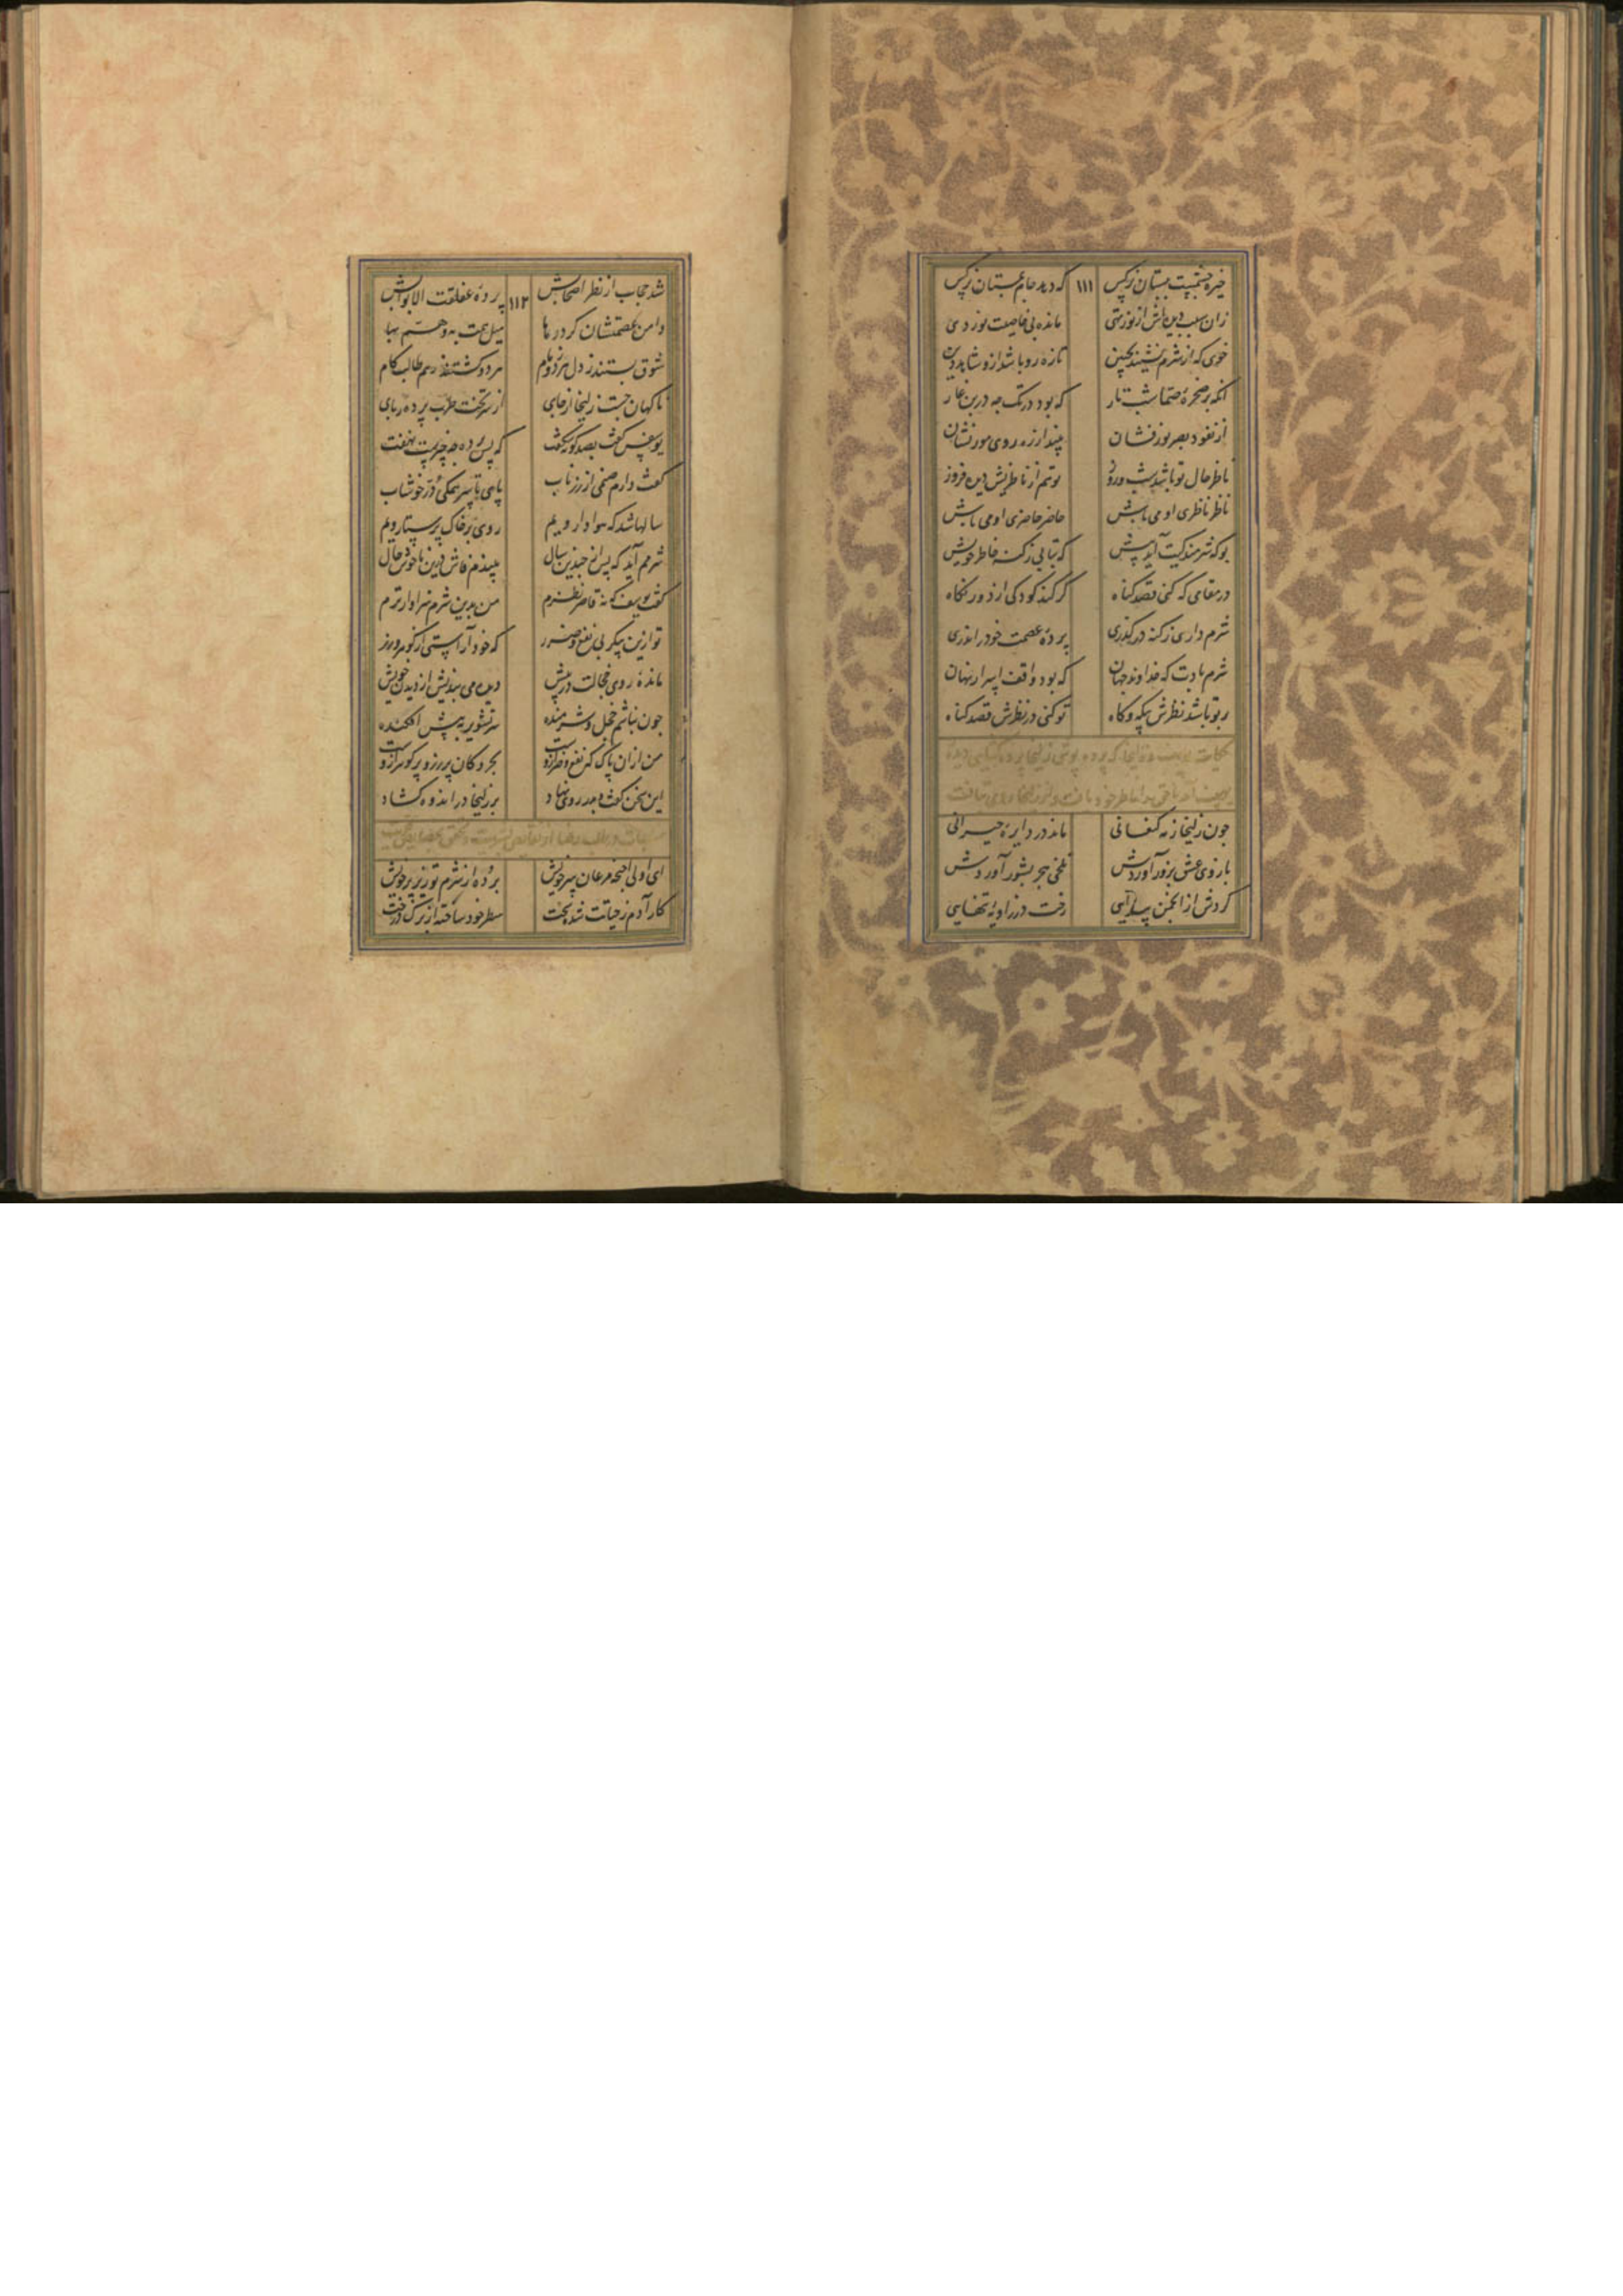 خیره چشمیست ببستان نرکس ۱۱۱ که درد جام بستان نرکس
زان سبب دیده اش از نور تهی مانده بی خاصیت نور دهی
خوی که از شرم نشیند بجبین تازه رو باشد ازو شاهد دین
انکه بر صخرهٔ صما شب تار که بود در تک چه در بن غار
از نفوذ بصر نور فشان بیند از زه روی مور نشان
ناظر حال تو باشد شب و روز تو هم از ناظریش دیده فروز
ناظر ناظری او می باش حاضر حاضری او می باش
بو که شرمندکیت آید پیش که بتابی ز کنه خاطر خویش
در مقامی که کنی قصد کناه کر کند کودکی از دور نکاه
شرم داری ز کنه در کذری پردهٔ عصمت خود را ندری
شرم بادت که خداوند جهان که بود واقف اسرار نهان
بر تو باشد نظرش بیکه و کاه تو کنی در نظرش قصد کناه
حکایت یوسف و زلیخا که پرده پوشی زلیخا پرده کشای دیده
یوسف
چون زلیخا ز مه کنعانی ماند در دایرهٔ حیرانی
بازوی عشق بزور آوردش تلخی هجر بشور آوردش
کردش از انجمن پیدایی رخت در زاویهٔ تنهایی
شد حجاب از نظر اصحابش ۱۱۲ پردهٔ غلقت الابوابش
دامن عصمتشان کرد رها میل همت به وهم بها
شوق بستند ز دل هر دو زمام هر دو کشتند ز هم طالب کام
ناکهان جست زلیخا از جای از سر تخت طرب پرده ربای
یوسفش کفت بصد کونه شکفت که پس پرده چه چیزیت نهفت
کفت دارم صنمی از زر ناب پای تا سر همکی در خوشاب
سالها شد که هوادار ویم روی بر خاک پرستار ویم
شرمم آید که پس از چندین سال بیندم فاش درین ناخوش حال
کفت یوسف که نه قاصر نظرم من بدین شرم سزاوارترم
تو ازین پیکر بی نفع و ضرر که خود آراستی از کوهر و زر
مانده روی خجالت در پیش دیده می بندیش از دیدن خویش
چون نباشم خجل و شرمنده سر تشویر به پیش افکنده
من ازان پاک که نفع و ضر ازوست بحر و کان پر زر و پر کوهر ازوست
این سخن کفت و بدر روی نهاد بر زلیخا در اندوه کشاد
ای اولی اجنحه مرغان سر خویش برده از شرم تو زیر پر خویش
کار آدم ز حیاتت شده سخت ستر خود ساخته از برک درخت